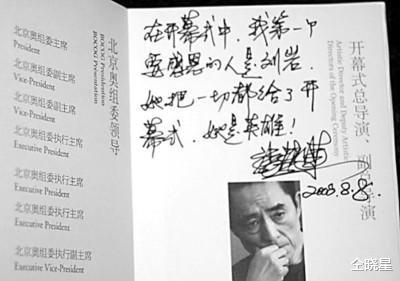 北京奥组委领导
BOCOG Presidential
BOCOG Presentation
北京奥组委主席
President
北京奥组委副主席
Vice-President
北京奥组委副主席
Vice-President
北京奥组委执行主席
Executive President
北京奥组委执行主席
Executive President
北京奥组委执行主席
Executive President
北京奥组委执行副主席
Executive Vice-President
在开幕式中，我第一个
要感恩的人是刘岩。
她把一切都给了开
幕式，她是英雄！
张艺谋
2008.8.8.
开幕式总导演、副总导演
Artistic Director and Deputy Artistic
Directors of the Opening Ceremony
仝晓星